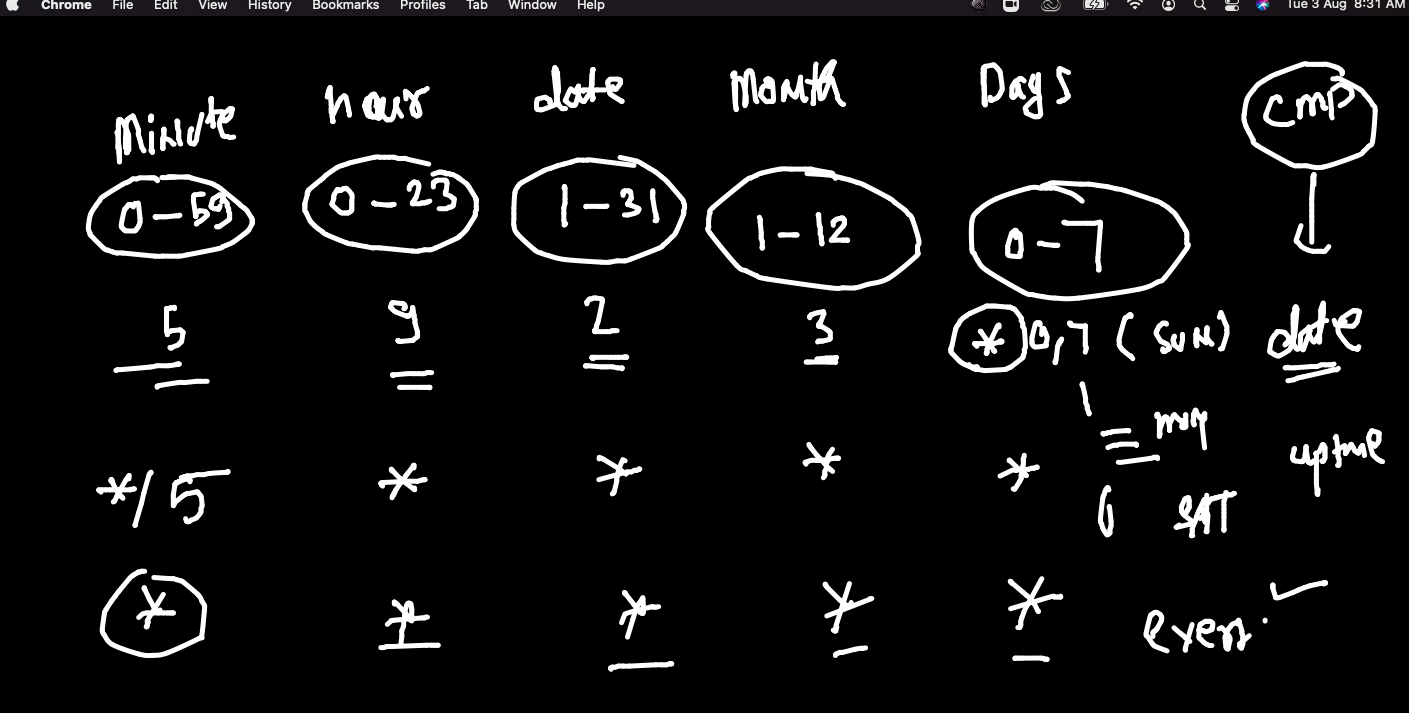 Chrome File Edit View History Bookmarks Profiles Tab Window Help Tue 3 Aug 8:31 AM
Minute hour date Month Days
0-59 0-23 1-31 1-12 0-7
5 9 2 3 * 0,7 (SUN) date
1
*/5 * * * * uptime
6 SAT
* * * * *